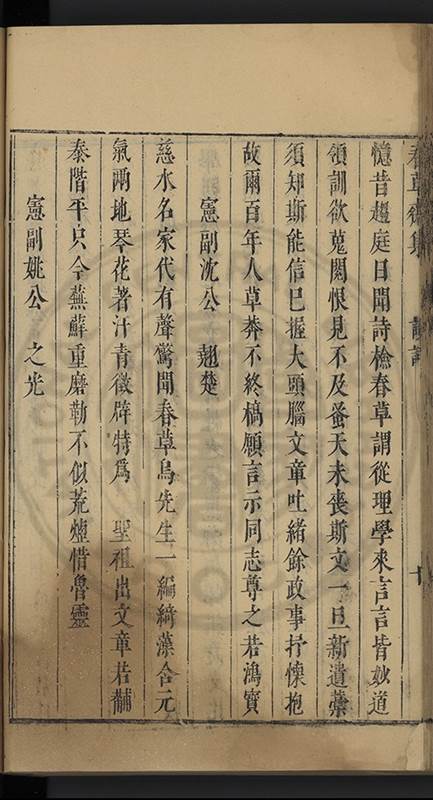 春草齋集
十
憶昔趨庭日聞詩檢春草謂從理學來言言皆妙道
領訓欲蒐閱恨見不及蚤天未喪斯文一旦新遺藁
須知斯能信已握大頭腦文章吐緒餘政事抒懷抱
故爾百年人草莽不終槁願言示同志尊之若鴻寶
憲副沈公 翹楚
慈水名家代有聲驚聞春草烏先生一編綺藻含元
氣兩地琴花著汗青徵辟特為 聖祖出文章若黼
泰階平只今蕪蘚重磨勒不似荒煙惜魯靈
憲副姚公 之光